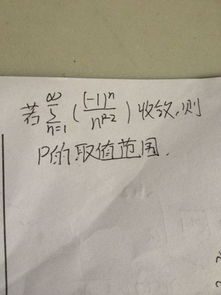 若∑_{n=1}^{∞}((-1)^n/n^{p-2})收敛,则
P的取值范围.